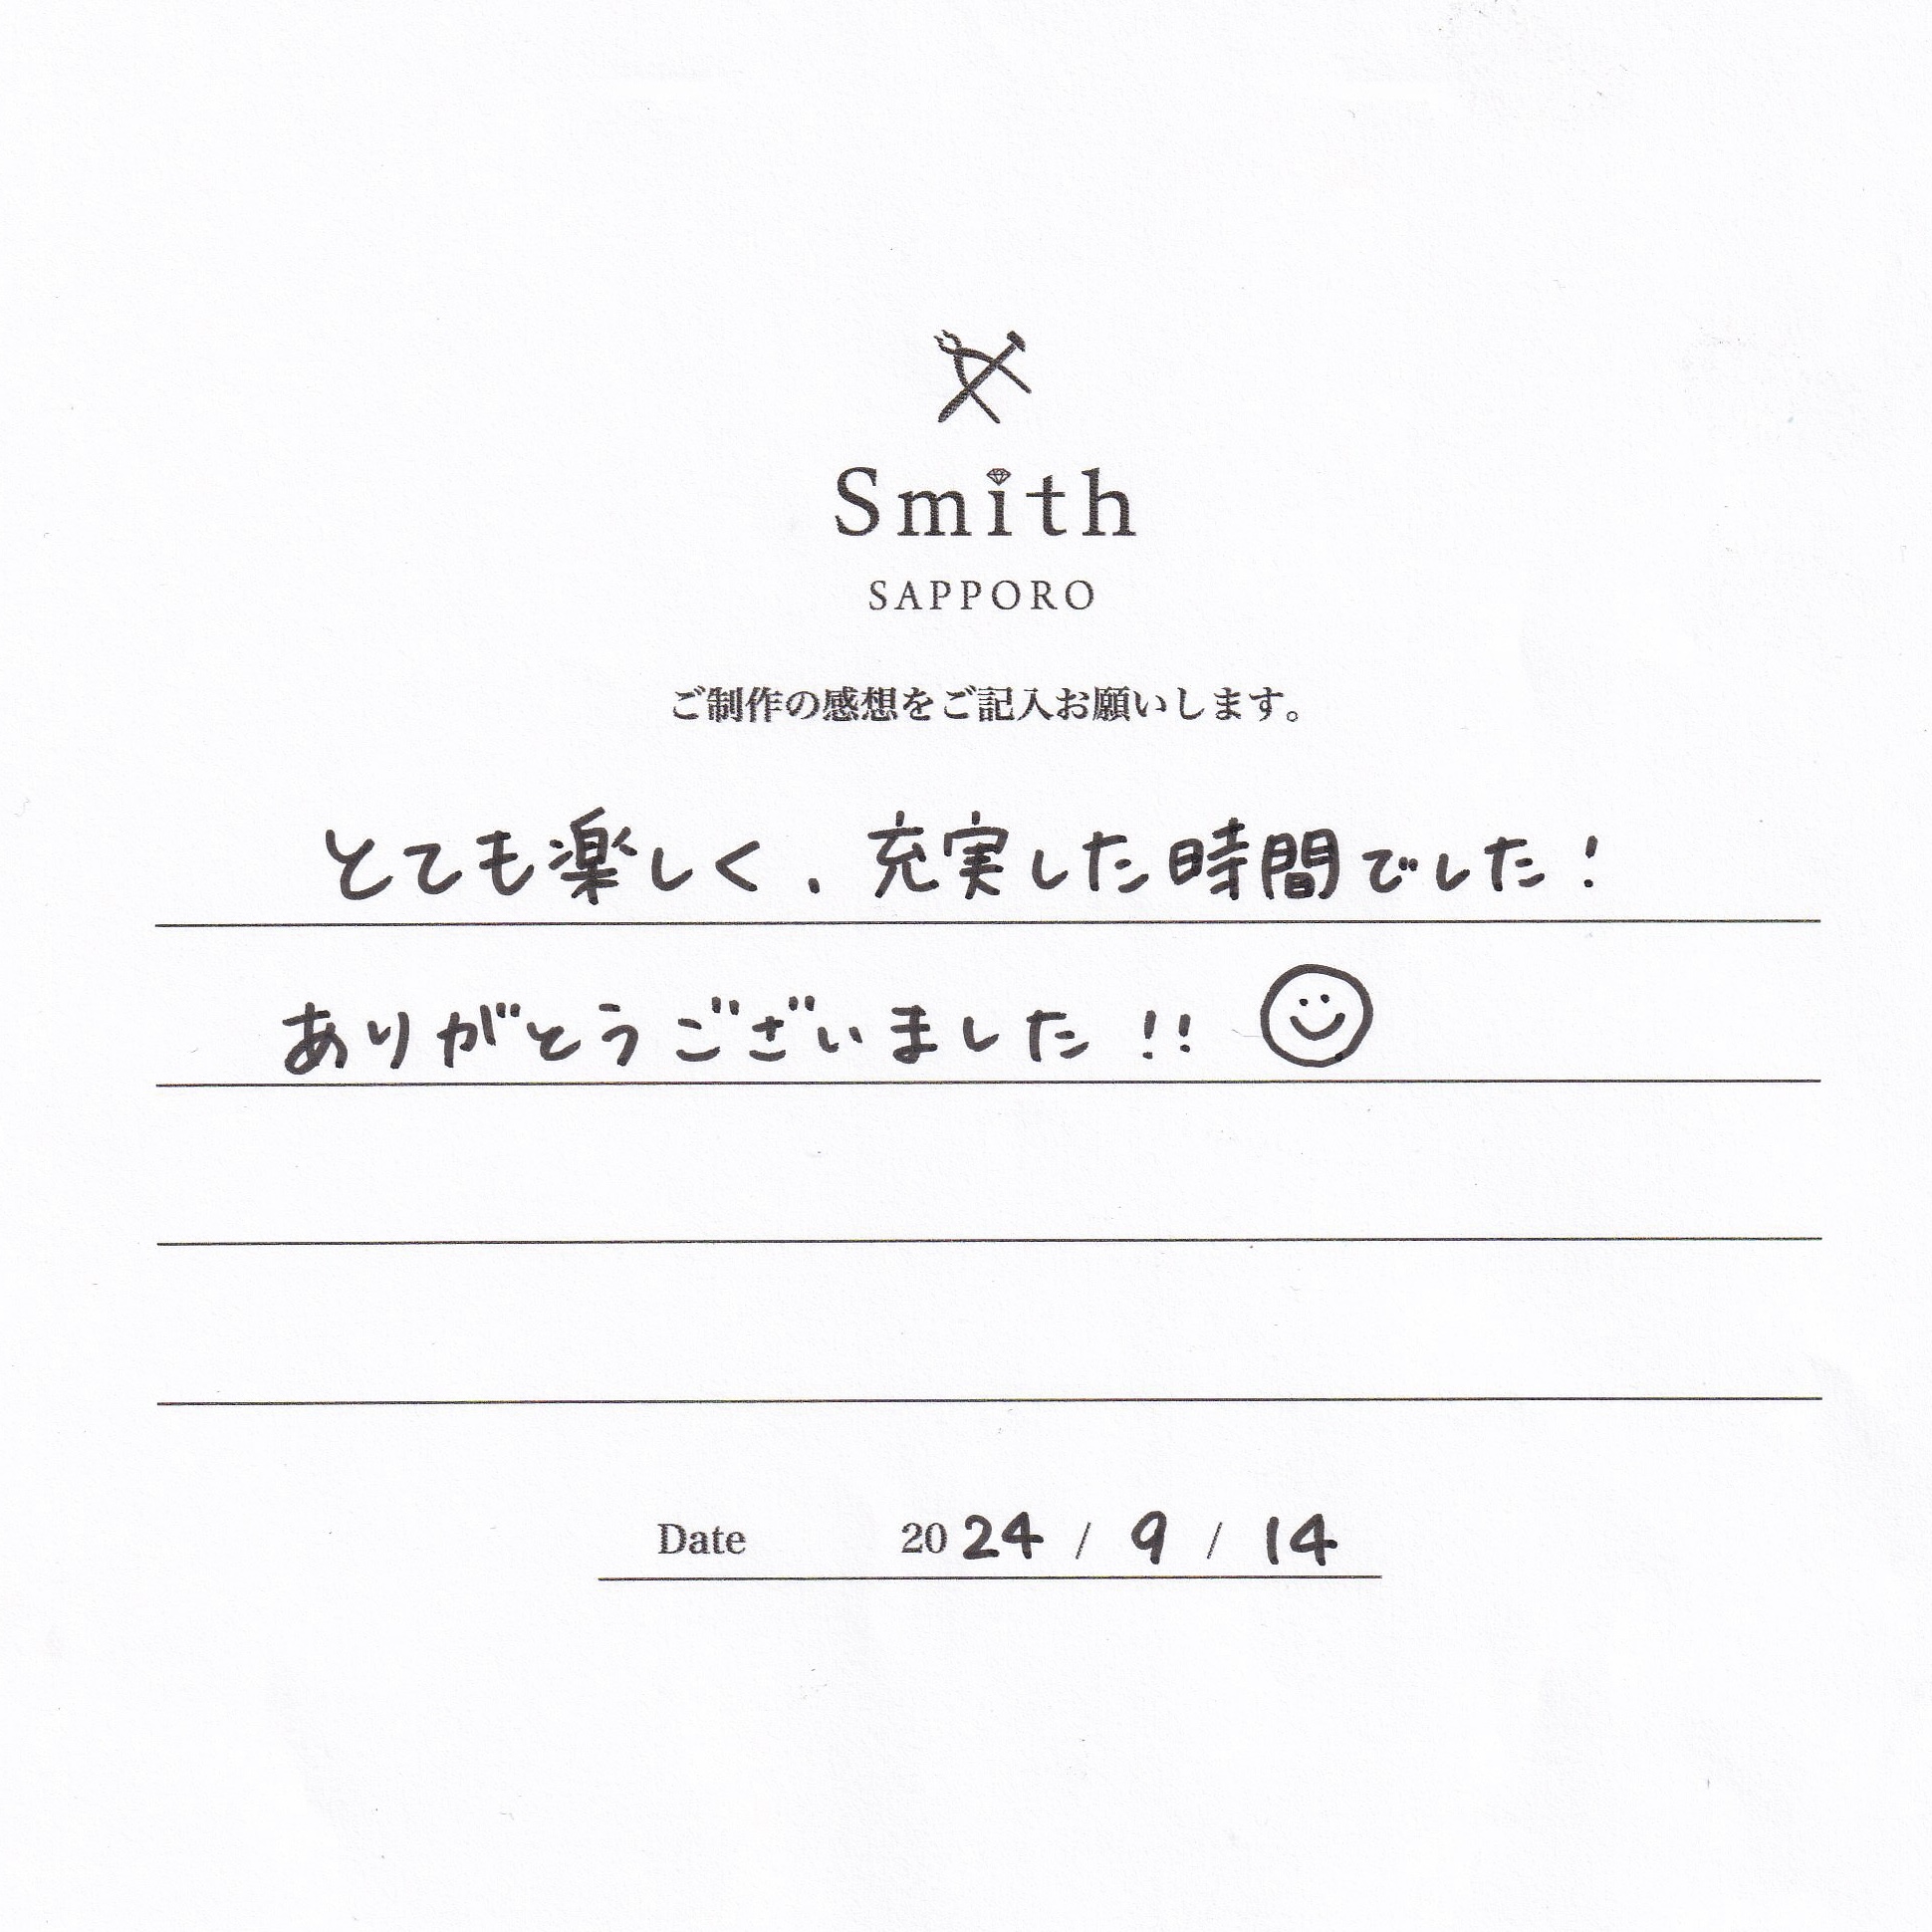 Smith
SAPPORO
ご制作の感想をご記入お願いします。
とても楽しく、充実した時間でした!
ありがとうございました!!
Date 2024 / 9 / 14